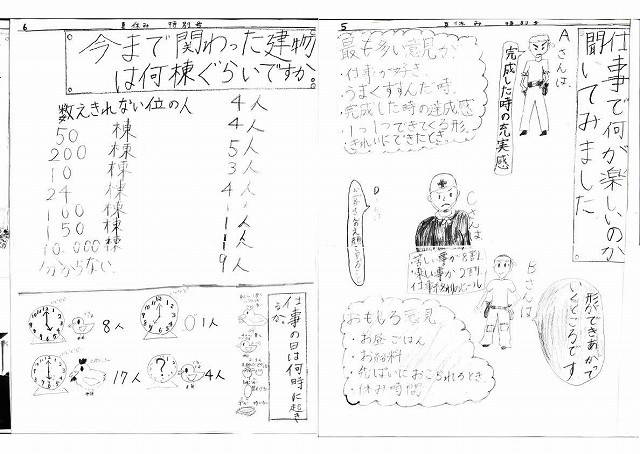 5
夏休み 特別号
仕事で何が楽しいのか
聞いてみました
Aさんは、
完成した時の充実感
最も多い意見が、
・仕事が好き
・うまくすすんだ時。
・完成した時の達成感
・1つ1つできてくる形。
・きれいにできたとき。
Cさんは、
苦しい事が8割
楽しい事が2割
仕事終わりのビール
Bさんは
形ができあがって
いくところです
おもしろ意見
・お昼ごはん
・お給料
・先ぱいにおこられるとき
・休み時間
6
夏休み 特別号
今まで関わった建物
は何棟ぐらいですか
数えきれない位の人 4人
50 棟 4人
200 棟 5〃
10 棟 3〃
24 棟 4〃
100 棟 1〃
150 棟 1〃
10.000棟 1〃
分からない 9人
仕事の日は何時に起き
るか
8人
1人
17人
4人